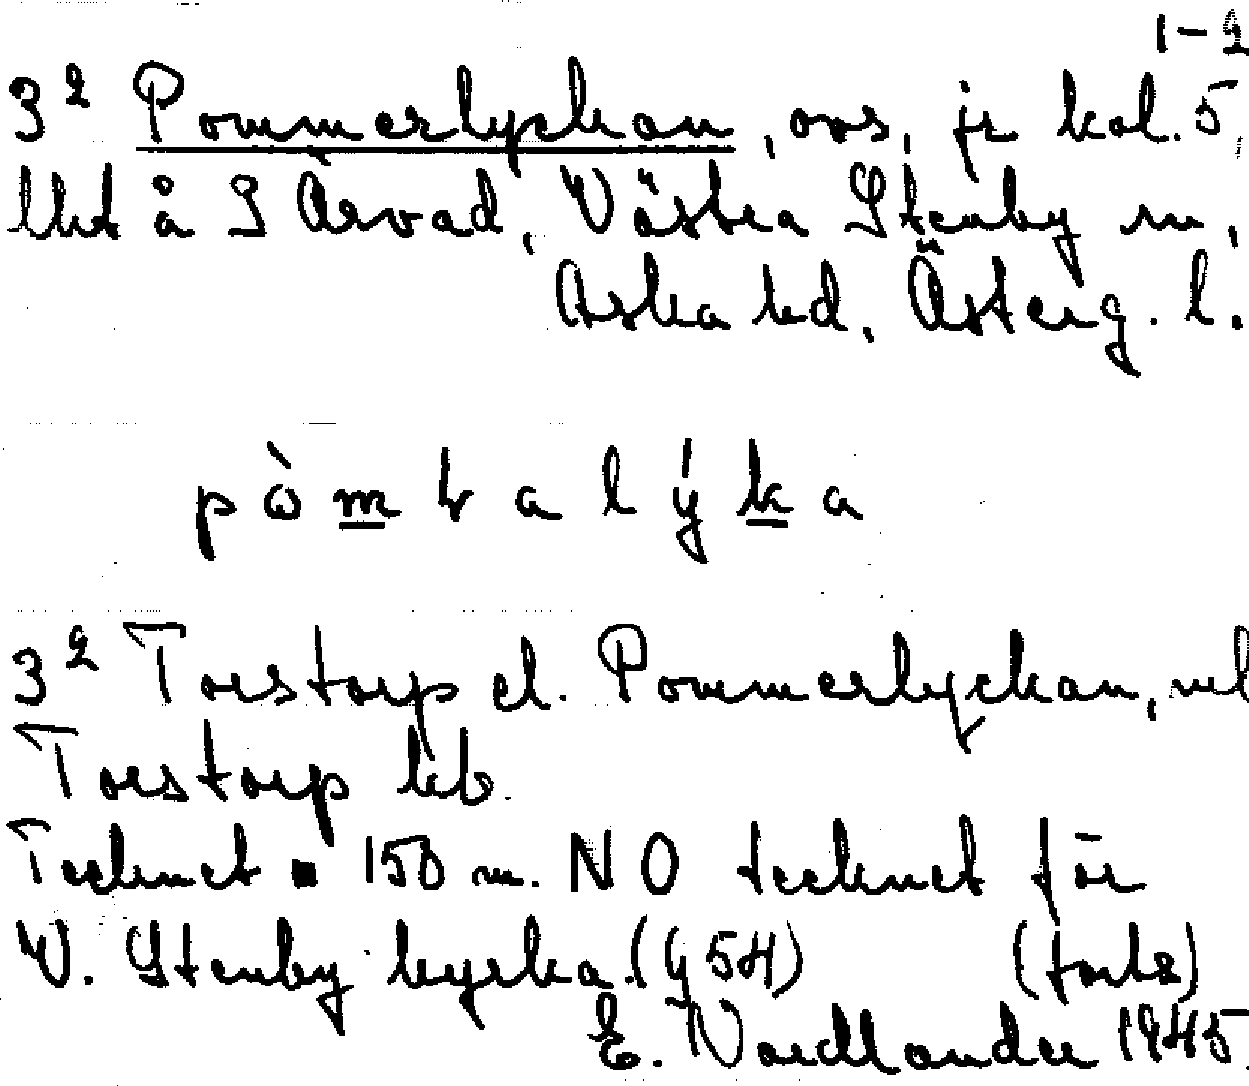 1-2
3² Pommerlyckan, ovs, jr kol. 5,
lht å S Årvad, Västra Stenby sn,
Aska hd, Österg. l.
pòmkalýka
3² Torstorp el. Pommerlyckan,
Torstorp lb.
Tecknet ■ 150 m. NO tecknet för
V. Stenby kyrka. (y 54) (forts)
E. Nordlander 1945.